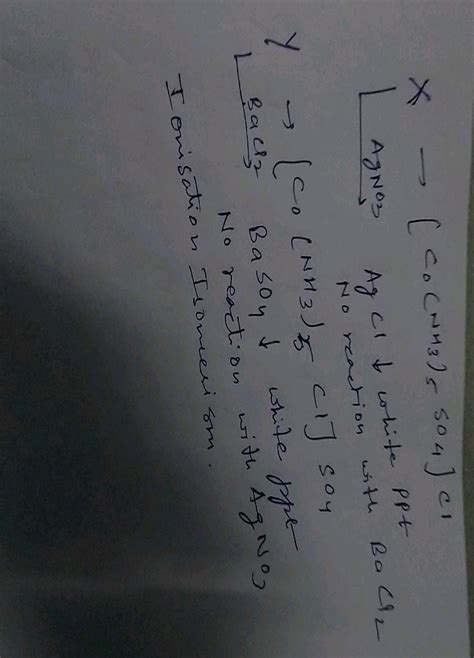 X → [Co(NH3)5 SO4] Cl
AgNO3 AgCl ↓ white ppt
No reaction with BaCl2
Y → [Co(NH3)5 Cl] SO4
BaCl2 BaSO4 ↓ white ppt
No reaction with AgNO3
Ionisation Isomerism.